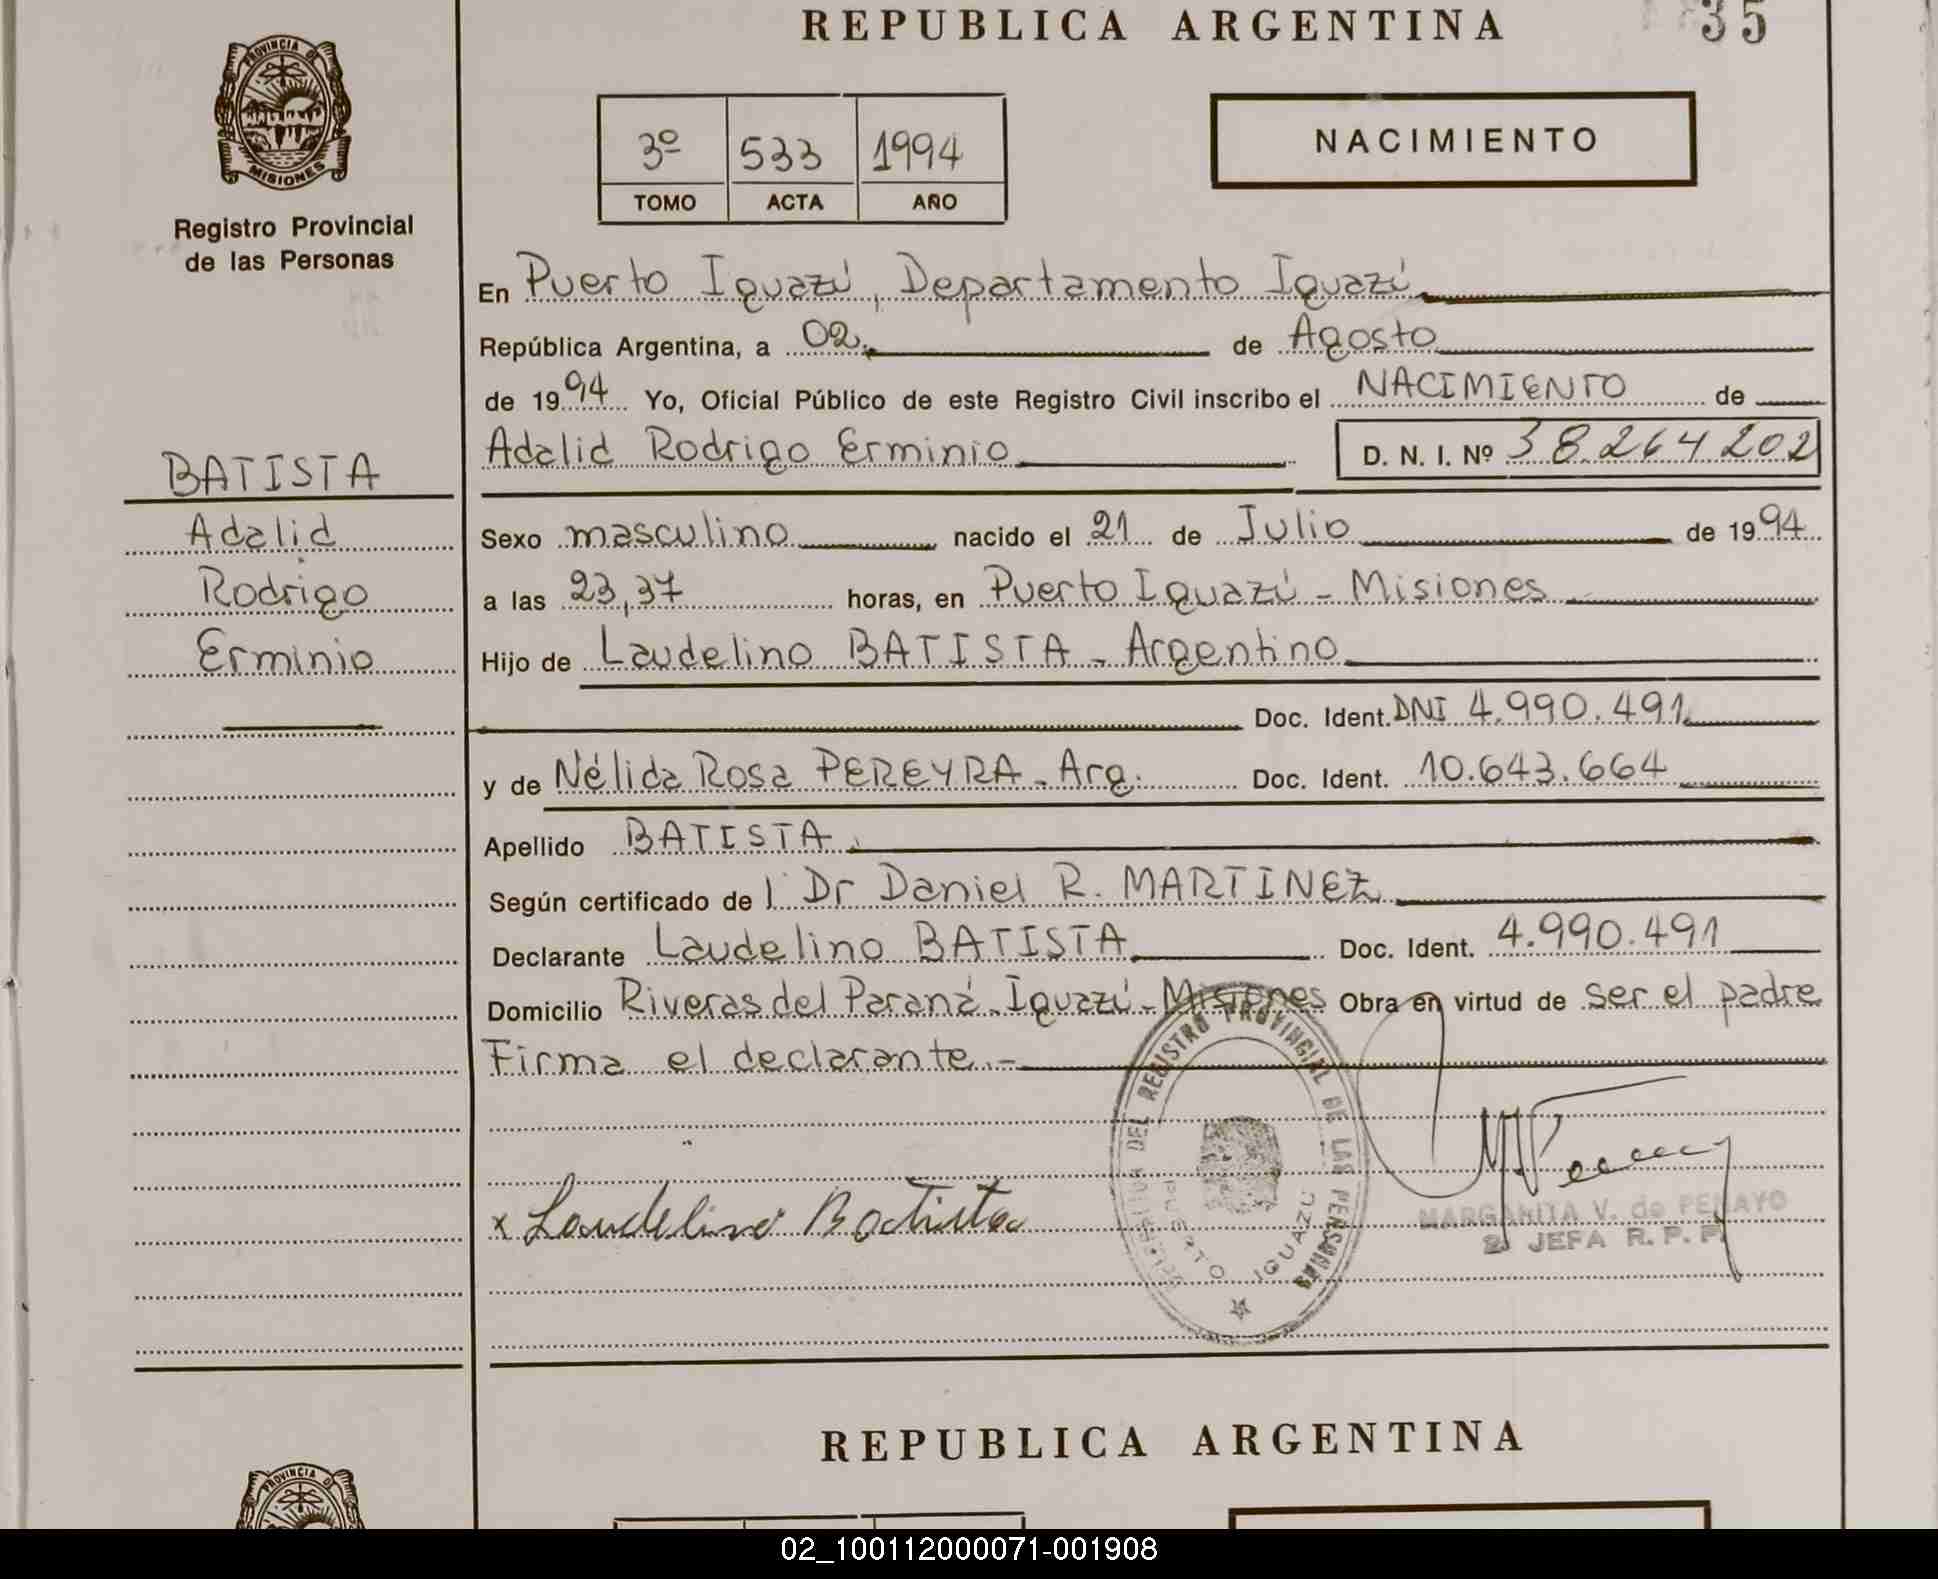 REPUBLICA ARGENTINA
35
PROVINCIA DE
MISIONES
Registro Provincial
de las Personas
3º 533 1994
TOMO ACTA AÑO
NACIMIENTO
En Puerto Iguazú, Departamento Iguazú
República Argentina, a 02 de Agosto
de 1994 Yo, Oficial Público de este Registro Civil inscribo el NACIMIENTO de
Adalid Rodrigo Erminio D. N. I. Nº 38.264 202
BATISTA
Adalid
Rodrigo
Erminio
Sexo masculino nacido el 21 de Julio de 1994
a las 23,37 horas, en Puerto Iguazú - Misiones
Hijo de Laudelino BATISTA - Argentino
Doc. Ident. DNI 4.990.491
y de Nélida Rosa PEREYRA - Arg. Doc. Ident. 10.643.664
Apellido BATISTA
Según certificado de l Dr Daniel R. MARTINEZ
Declarante Laudelino BATISTA Doc. Ident. 4.990.491
Domicilio Riveras del Paraná - Iguazú - Misiones Obra en virtud de ser el padre
Firma el declarante.-
DEL REGISTRO PROVINCIAL DE LAS PERSONAS
PUERTO IGUAZU
x Laudelino Batista
MARGARITA V. de PENAYO
2ª JEFA R. P. P.
REPUBLICA ARGENTINA
PROVINCIA D
02_100112000071-001908